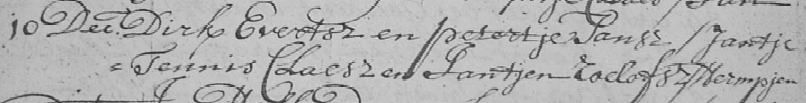 10 Dec: Dirk Evertsz en petertje Jansz / Jantje
= Tennis Claesz en Jantjen roelofsz / Hermpjen